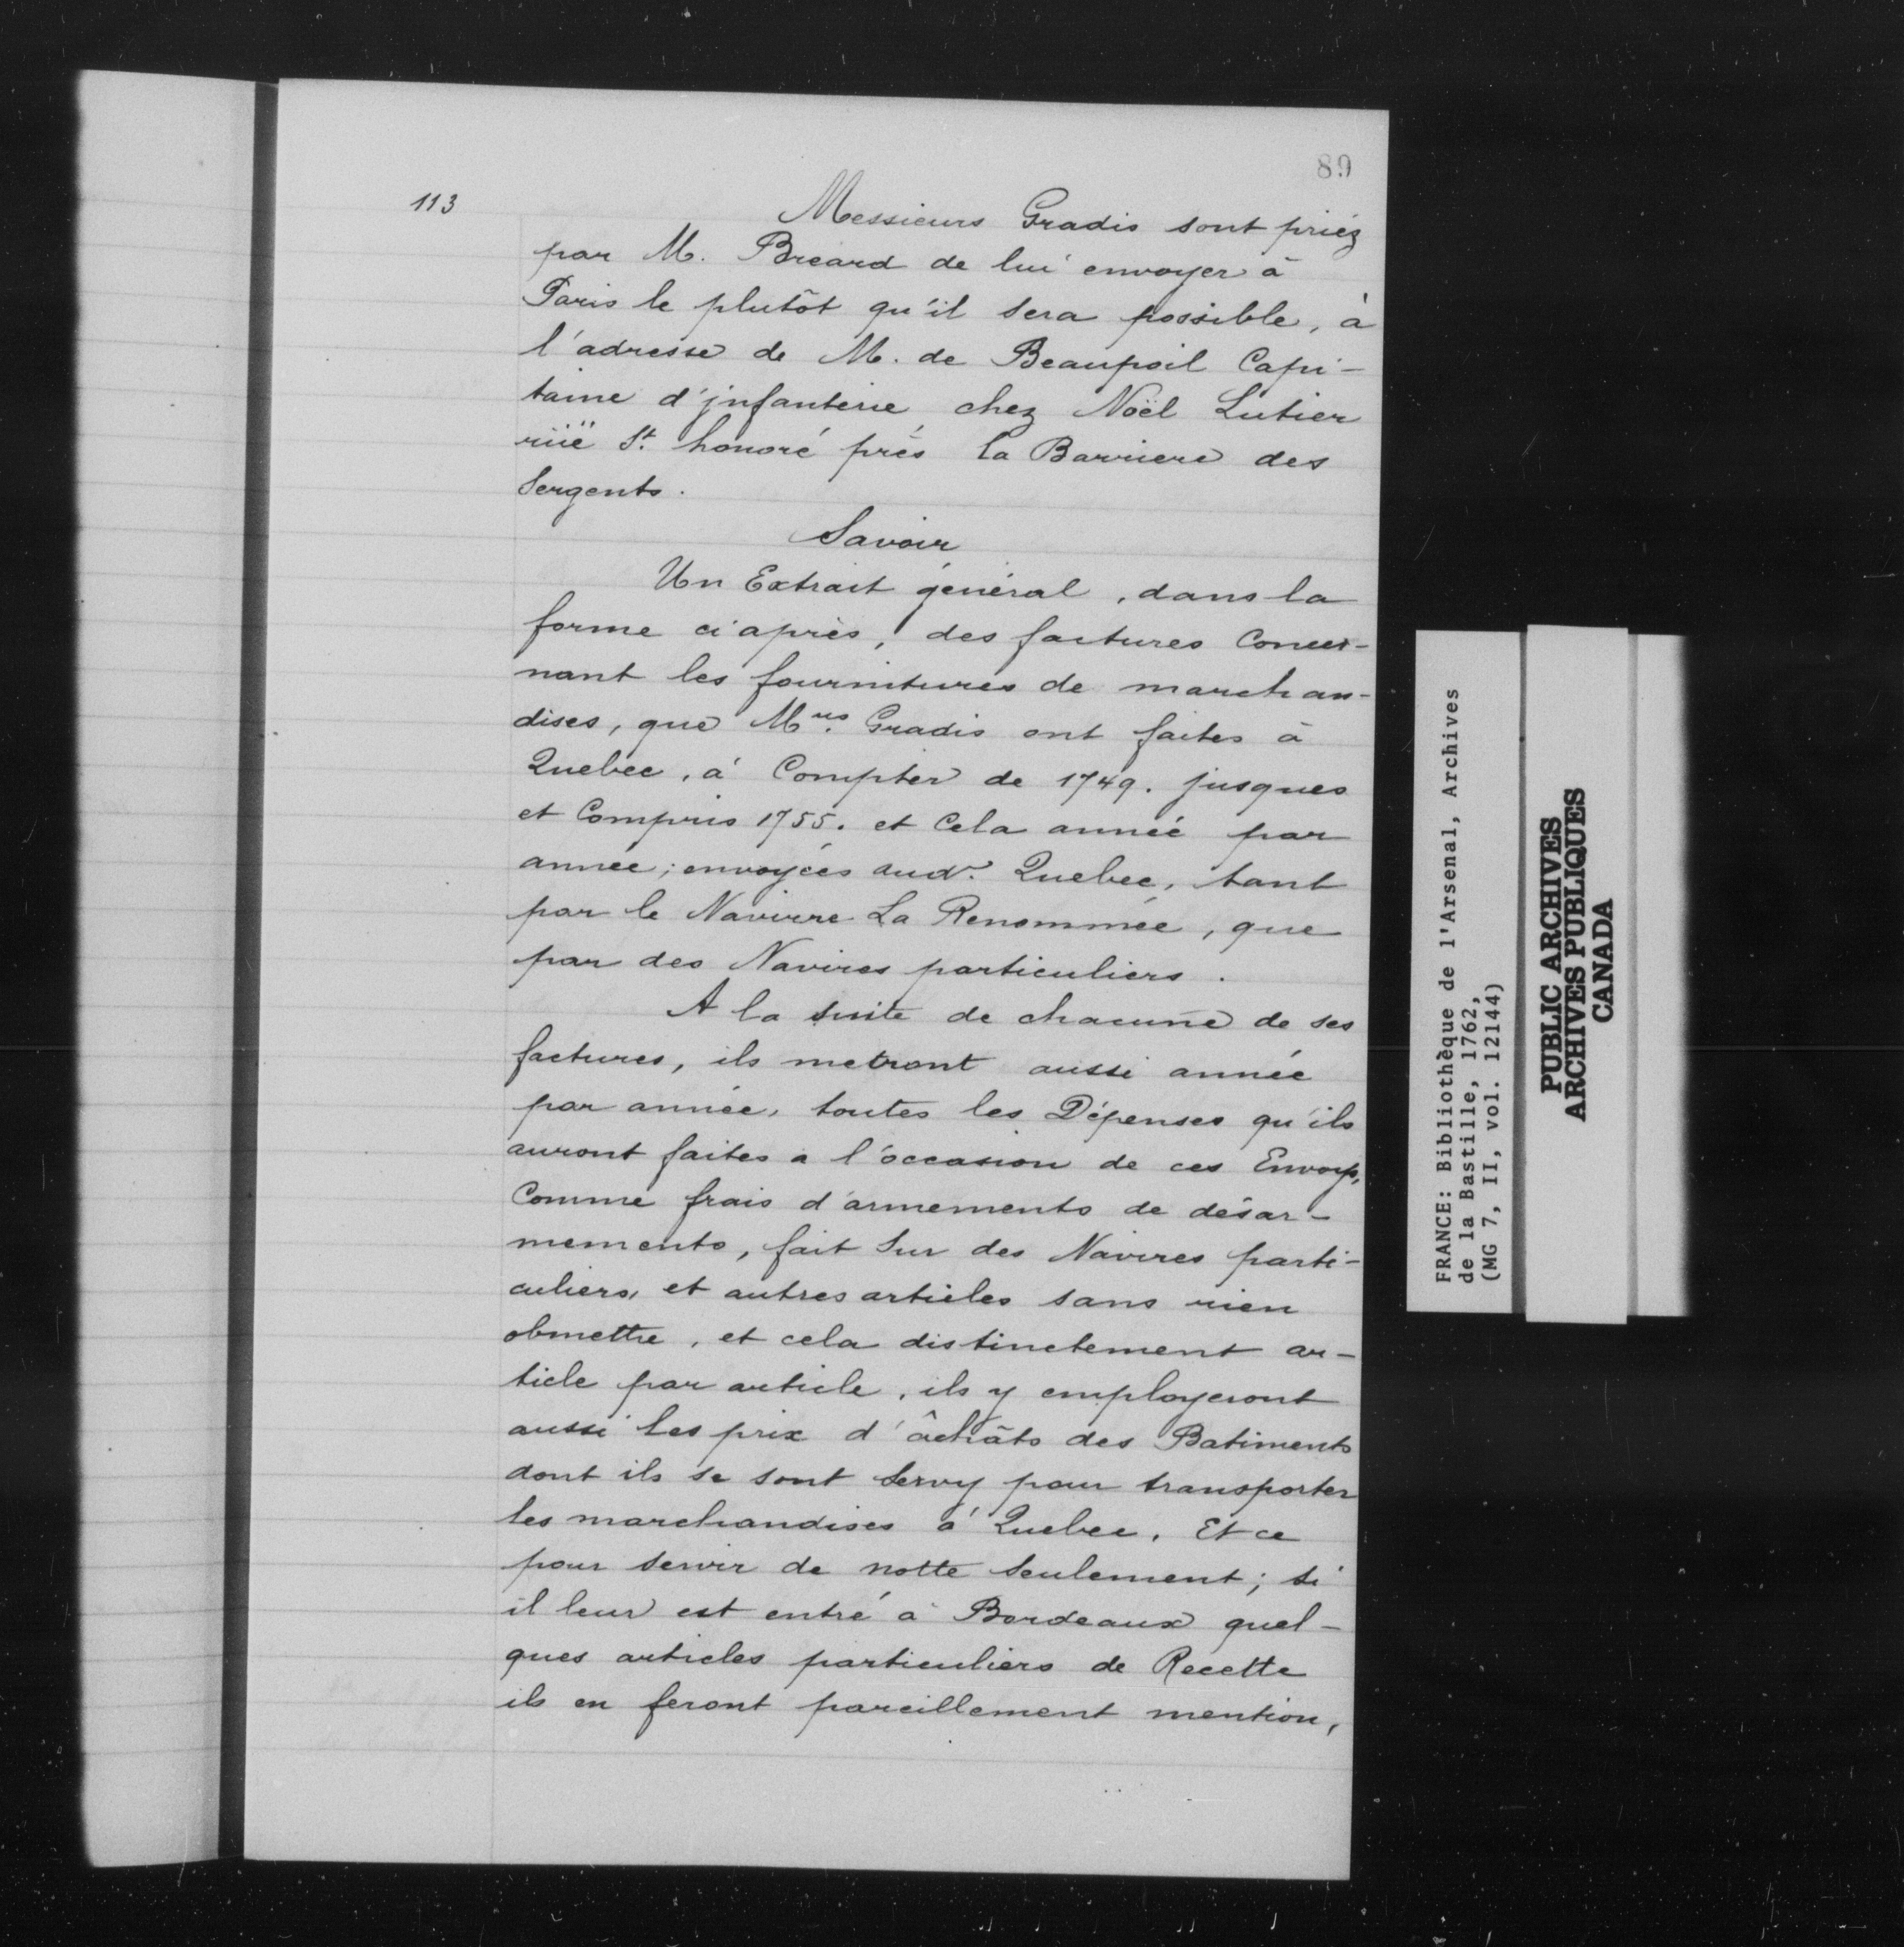 89
113
Messieurs Gradis sont priéz
par M. Breard de lui envoyer à
Paris le plutôt qu'il sera possible, à
l'adresse de M. de Beaupoil Capi-
taine d'jnfanterie chez Noël Lutier
rüë St. honoré près la Barriere des
Sergents.
Savoir
Un Extrait géneral, dans la
forme ci après, des factures Concer-
nant les fournitures de marchan-
dises, que Mrs. Gradis ont faites à
Quebec, à Compter de 1749. jusques
et Compris 1755. et Cela année par
année; envoyées aud. Quebec, tant
par le Navirre La Renommée, que
par des Navires particuliers.
A la suite de chacune de ses
factures, ils metront aussi année
par année, toutes les Dépenses qu'ils
auront faites a l'occasion de ces Envoys,
Comme frais d'armements de désar-
mements, fait Sur des Navires parti-
culiers, et autres articles sans rien
obmettre, et cela distinctement ar-
ticle par article, ils y employeront
aussi les prix d'âchâts des Batiments
dont ils se sont Servy pour transporter
les marchandises à Quebec. Et ce
pour servir de notte Seulement; si
il leur est entré à Bordeaux quel-
ques articles particuliers de Recette
ils en feront pareillement mention,
FRANCE: Bibliothèque de l'Arsenal, Archives
de la Bastille, 1762,
(MG 7, II, vol. 12144)
PUBLIC ARCHIVES
ARCHIVES PUBLIQUES
CANADA